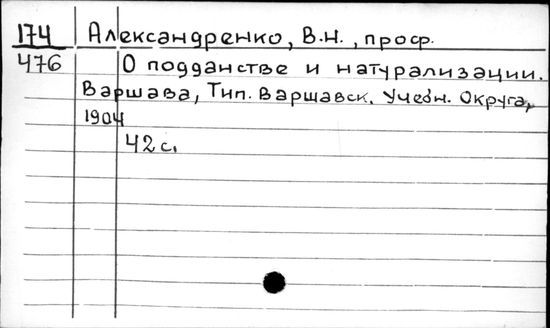 174 Александренко, В.Н., проф.
476 О подданстве и натурализации.
Варшава, Тип. Варшавск. Учебн. Округа,
1904
42 с.